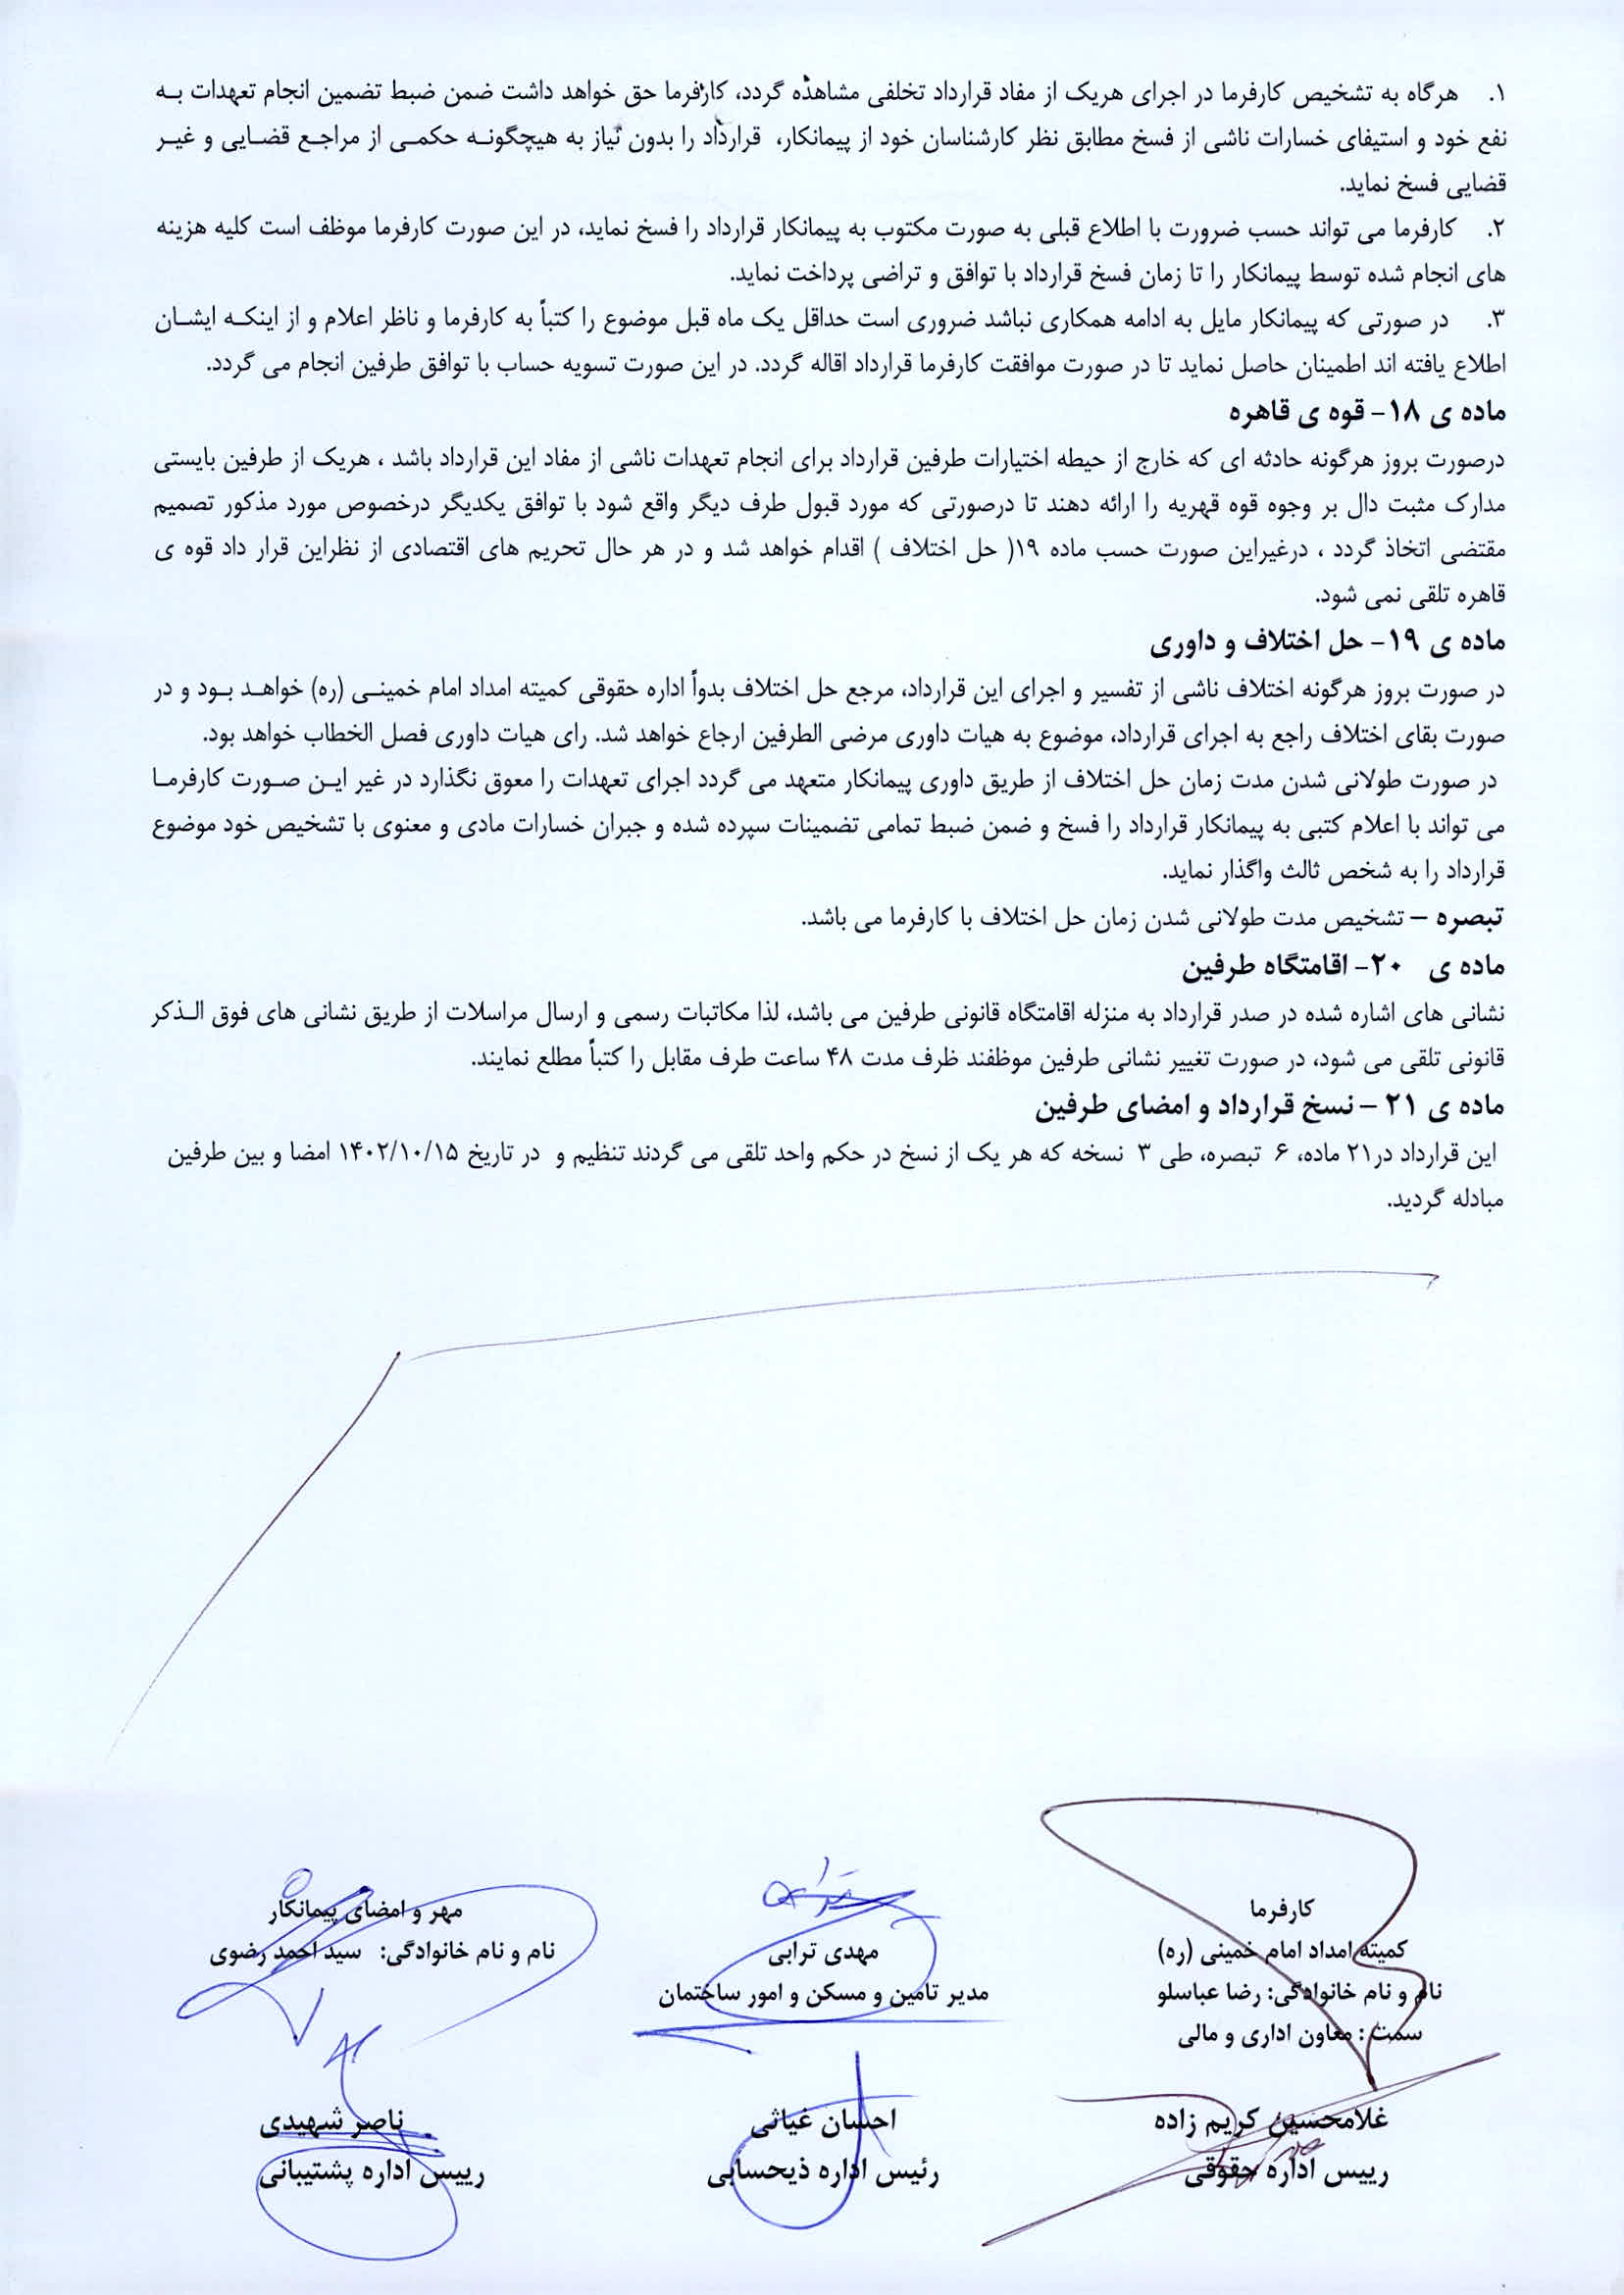 ۱. هرگاه به تشخیص کارفرما در اجرای هریک از مفاد قرارداد تخلفی مشاهده گردد، کارفرما حق خواهد داشت ضمن ضبط تضمین انجام تعهدات به
نفع خود و استیفای خسارات ناشی از فسخ مطابق نظر کارشناسان خود از پیمانکار، قرارداد را بدون نیاز به هیچگونه حکمی از مراجع قضایی و غیر
قضایی فسخ نماید.
۲. کارفرما می تواند حسب ضرورت با اطلاع قبلی به صورت مکتوب به پیمانکار قرارداد را فسخ نماید، در این صورت کارفرما موظف است کلیه هزینه
های انجام شده توسط پیمانکار را تا زمان فسخ قرارداد با توافق و تراضی پرداخت نماید.
۳. در صورتی که پیمانکار مایل به ادامه همکاری نباشد ضروری است حداقل یک ماه قبل موضوع را کتباً به کارفرما و ناظر اعلام و از اینکه ایشان
اطلاع یافته اند اطمینان حاصل نماید تا در صورت موافقت کارفرما قرارداد اقاله گردد. در این صورت تسویه حساب با توافق طرفین انجام می گردد.
ماده ی ۱۸- قوه ی قاهره
درصورت بروز هرگونه حادثه ای که خارج از حیطه اختیارات طرفین قرارداد برای انجام تعهدات ناشی از مفاد این قرارداد باشد ، هریک از طرفین بایستی
مدارک مثبت دال بر وجوه قوه قهریه را ارائه دهند تا درصورتی که مورد قبول طرف دیگر واقع شود با توافق یکدیگر درخصوص مورد مذکور تصمیم
مقتضی اتخاذ گردد ، درغیراین صورت حسب ماده ۱۹( حل اختلاف ) اقدام خواهد شد و در هر حال تحریم های اقتصادی از نظراین قرار داد قوه ی
قاهره تلقی نمی شود.
ماده ی ۱۹- حل اختلاف و داوری
در صورت بروز هرگونه اختلاف ناشی از تفسیر و اجرای این قرارداد، مرجع حل اختلاف بدواً اداره حقوقی کمیته امداد امام خمینی (ره) خواهد بود و در
صورت بقای اختلاف راجع به اجرای قرارداد، موضوع به هیات داوری مرضی الطرفین ارجاع خواهد شد. رای هیات داوری فصل الخطاب خواهد بود.
در صورت طولانی شدن مدت زمان حل اختلاف از طریق داوری پیمانکار متعهد می گردد اجرای تعهدات را معوق نگذارد در غیر این صورت کارفرما
می تواند با اعلام کتبی به پیمانکار قرارداد را فسخ و ضمن ضبط تمامی تضمینات سپرده شده و جبران خسارات مادی و معنوی با تشخیص خود موضوع
قرارداد را به شخص ثالث واگذار نماید.
تبصره – تشخیص مدت طولانی شدن زمان حل اختلاف با کارفرما می باشد.
ماده ی ۲۰- اقامتگاه طرفین
نشانی های اشاره شده در صدر قرارداد به منزله اقامتگاه قانونی طرفین می باشد، لذا مکاتبات رسمی و ارسال مراسلات از طریق نشانی های فوق الذکر
قانونی تلقی می شود، در صورت تغییر نشانی طرفین موظفند ظرف مدت ۴۸ ساعت طرف مقابل را کتباً مطلع نمایند.
ماده ی ۲۱ – نسخ قرارداد و امضای طرفین
این قرارداد در۲۱ ماده، ۶ تبصره، طی ۳ نسخه که هر یک از نسخ در حکم واحد تلقی می گردند تنظیم و در تاریخ ۱۴۰۲/۱۰/۱۵ امضا و بین طرفین
مبادله گردید.
کارفرما
کمیته امداد امام خمینی (ره)
نام و نام خانوادگی: رضا عباسلو
سمت : معاون اداری و مالی
مهدی ترابی
مدیر تامین و مسکن و امور ساختمان
مهر و امضای پیمانکار
نام و نام خانوادگی: سید احمد رضوی
غلامحسین کریم زاده
رییس اداره حقوقی
احسان غیاثی
رئیس اداره ذیحسابی
ناصر شهیدی
رییس اداره پشتیبانی